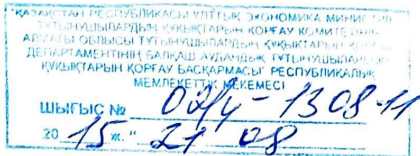 "ҚАЗАҚСТАН РЕСПУБЛИКАСЫ ҰЛТТЫҚ ЭКОНОМИКА МИНИСТРЛІГІ
ТҰТЫНУШЫЛАРДЫҢ ҚҰҚЫҚТАРЫН ҚОРҒАУ КОМИТЕТІНІҢ
АЛМАТЫ ОБЛЫСЫ ТҰТЫНУШЫЛАРДЫҢ ҚҰҚЫҚТАРЫН ҚОРҒАУ
ДЕПАРТАМЕНТІНІҢ БАЛҚАШ АУДАНДЫҚ ТҰТЫНУШЫЛАРДЫҢ
ҚҰҚЫҚТАРЫН ҚОРҒАУ БАСҚАРМАСЫ" РЕСПУБЛИКАЛЫҚ
МЕМЛЕКЕТТІК МЕКЕМЕСІ
ШЫҒЫС № 1308-11
20 15 ж. " 21 08